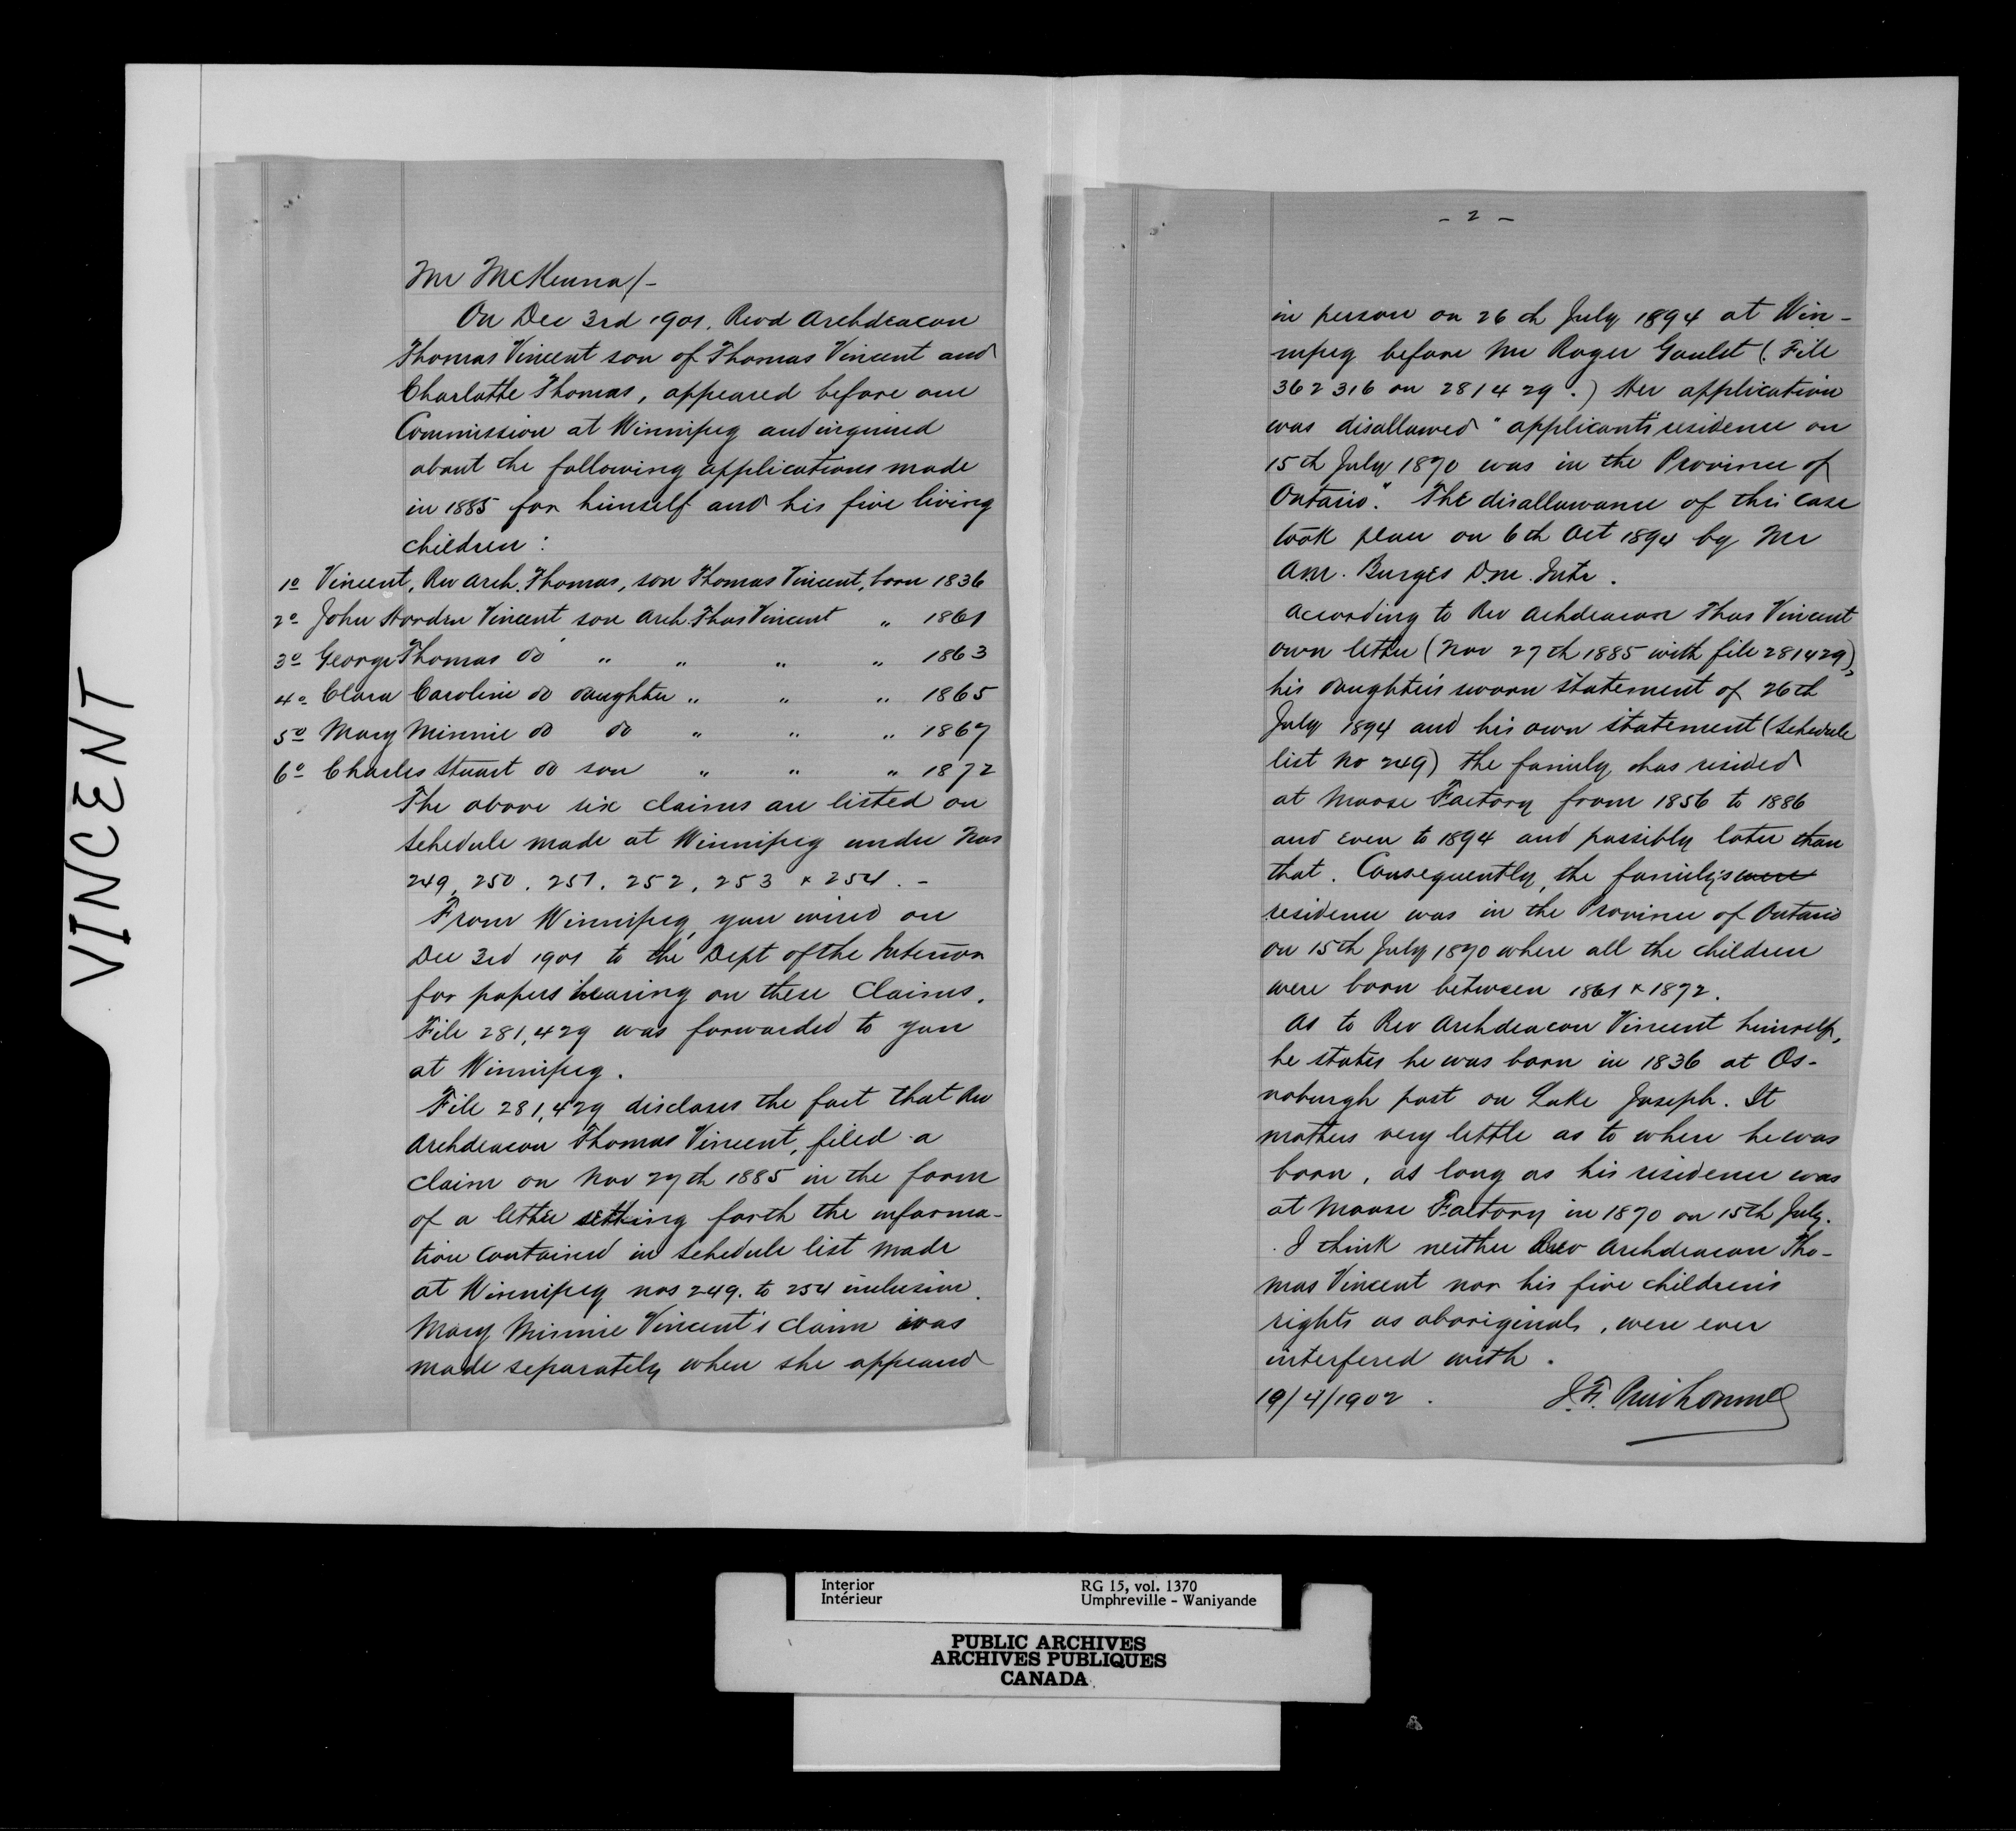 VINCENT
Mr McKenna/-
On Dec 3rd 1901. Revd Archdeacon
Thomas Vincent son of Thomas Vincent and
Charlotte Thomas, appeared before our
Commission at Winnipeg and inquired
about the following applications made
in 1885 for himself and his five living
children :
1o Vincent, Rev Arch. Thomas, son Thomas Vincent, born 1836
2o John Horden Vincent son Arch. Thos Vincent " 1861
3o George Thomas do " " " " 1863
4o Clara Caroline do daughter " " " 1865
5o Mary Minnie do do " " " 1867
6o Charles Stuart do son " " " 1872
The above six claims are listed on
schedule made at Winnipeg under Nos
249, 250, 251, 252, 253 & 254. -
From Winnipeg, you wired on
Dec 3rd 1901 to the Dept of the Interior
for papers bearing on these Claims.
File 281,429 was forwarded to you
at Winnipeg.
File 281,429 discloses the fact that Rev
Archdeacon Thomas Vincent, filed a
claim on Nov 27th 1885 in the form
of a letter setting forth the informa-
tion contained in schedule list made
at Winnipeg nos 249. to 254 inclusive.
Mary Minnie Vincent's claim was
made separately when she appeared
- 2 -
in person on 26th July 1894 at Win-
nipeg before Mr Roger Goulet (File
362316 on 281429.) Her application
was disallowed "applicant's residence on
15th July 1870 was in the Province of
Ontario." The disallowance of this case
took place on 6th Oct 1894 by Mr
Am. Burges D.m. Intr.
According to Rev Achdeacon Thos Vincent
own letter (Nov 27th 1885 with file 281429),
his daughter's sworn statement of 26th
July 1894 and his own statement (schedule
list No 249) the family has resided
at Moose Factory from 1856 to 1886
and even to 1894 and possibly later than
that. Consequently, the family's were
residence was in the Province of Ontario
on 15th July 1870 where all the children
were born between 1861 & 1872.
As to Rev Archdeacon Vincent himself,
he states he was born in 1836 at Os-
noburgh post on Lake Joseph. It
matters very little as to where he was
born, as long as his residence was
at Moose Factory in 1870 on 15th July.
I think neither Rev Archdeacon Tho-
mas Vincent nor his five children's
rights as aboriginals, were ever
interfered with.
19/4/1902. J.F. Prud'homme
Interior RG 15, vol. 1370
Intérieur Umphreville - Waniyande
PUBLIC ARCHIVES
ARCHIVES PUBLIQUES
CANADA